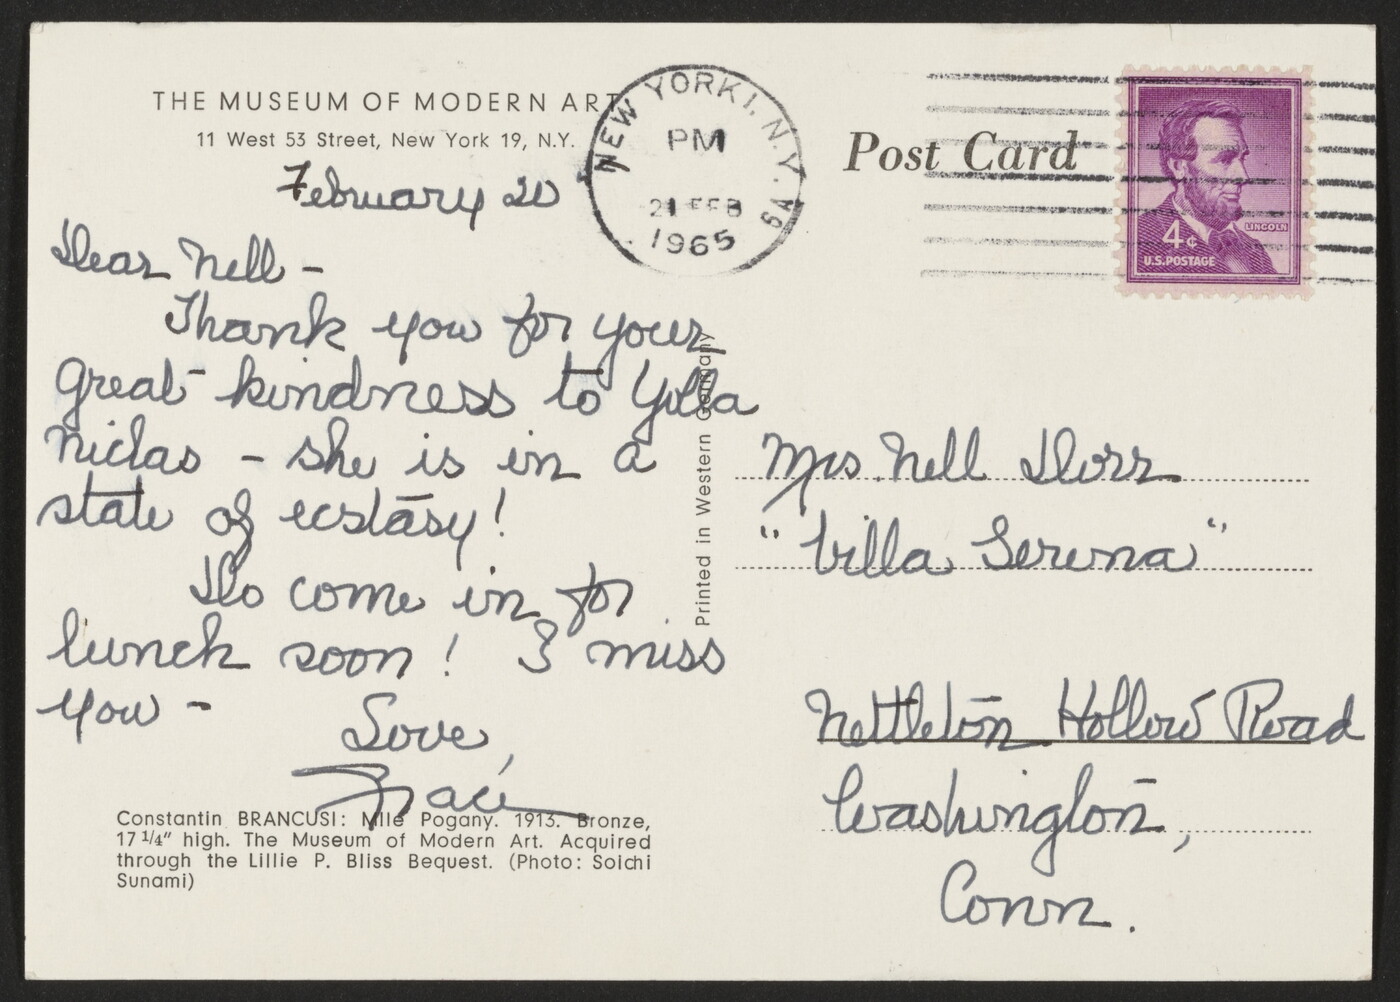 THE MUSEUM OF MODERN ART
11 West 53 Street, New York 19, N.Y.
February 20
Dear Nell -
Thank you for your
great kindness to Yolla
Niclas - she is in a
state of ecstasy!
Do come in for
lunch soon! I miss
you -
Love,
Grace
Constantin BRANCUSI: Mlle Pogany. 1913. Bronze,
17 1/4" high. The Museum of Modern Art. Acquired
through the Lillie P. Bliss Bequest. (Photo: Soichi
Sunami)
Printed in Western Germany
NEW YORK 1, N.Y.
PM
21 FEB
1965
Post Card
4¢
LINCOLN
U.S. POSTAGE
Mrs Nell Dorr
"Villa Serena"
Nettleton Hollow Road
Washington,
Conn.